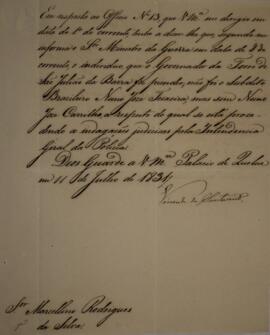 Em resposta ao Officio Nº 13, que V Mce me dirigio em
data do 1º do corrente, tenho a dizer lhe que, segundo me
informa o Sr. Ministro da Guerra em data de 8 do
corrente, o individuo que o Governador da Torre de
São Julião da Barra fez prender, não foi o Subdito
Brasileiro Nuno José Teixeira, mas sim Nuno
José Carrilho, a respeito do qual se está proce-
dendo a indagações judiciaes pela Intendencia
Geral da Policia.
Deos Guarde a V Mce Palacio de Queluz
em 11 de Julho de 1831
Visconde de Santarem
Snr Marcellino Rodrigues
da Silva